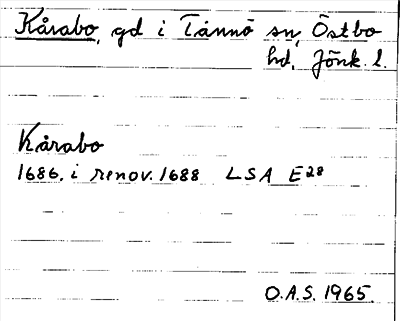 Kårabo, gd i Tånnö sn, Östbo
hd, Jönk. l.
Kårabo
1686. i renov. 1688 LSA E28
O.A.S. 1965.